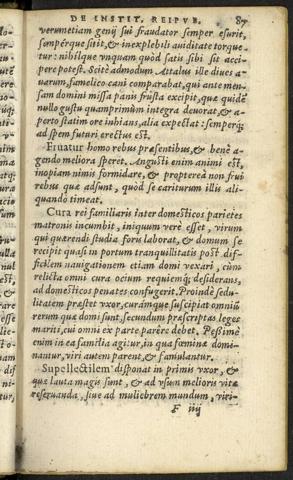 DE INSTIT. REIPVB. 87
verumetiam genij sui fraudator semper esurit,
sempérque sitit, & inexplebili auiditate torque-
tur: nihilque vnquam quod satis sibi sit acci-
pere potest. Scitè admodum Attalus ille diues a-
uarum, famelico cani comparabat, qui ante men-
sam domini missa panis frusta excipit, quæ quidē
nullo gustu quamprimùm integra deuorat, & a-
perto statim ore inhians, alia expectat: semperq;
ad spem futuri erectus est.
Fruatur homo rebus præsentibus, & benè a-
gendo meliora speret. Angusti enim animi est,
inopiam nimis formidare, & proptereà non frui
rebus quæ adsunt, quod se cariturum illis ali-
quando timeat.
Cura rei familiaris inter domesticos parietes
matronis incumbit, iniquum verè esset, virum
qui quærendi studia foris laborat, & domum se
recipit quasi in portum tranquillitatis post dif-
ficilem nauigationem etiam domi vexari, cùm
relicta omni cura ocium requiemq; desiderans,
ad domesticos penates confugerit. Proinde sedu-
litatem præstet vxor, curámque suscipiat omniū
rerum quæ domi sunt, secundum præscriptas leges
mariti, cui omni ex parte parêre debet. Peßimè
enim in ea familia agitur, in qua fœminæ domi-
nantur, viri autem parent, & famulantur.
Supellectilem disponat in primis vxor, &
quæ lauta magis sunt, & ad vsum melioris vitæ
reseruanda, siue ad muliebrem mundum, viri-
F iiij